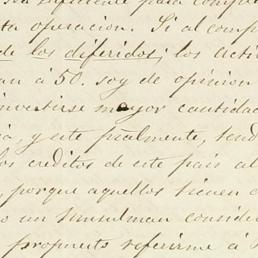 suficiente para comple
ta operacion. Si al comp
de los diferidos; los acti
an á 50. soy de opinion
invertirse mayor cantidad
ia, y este realmente, tend
los creditos de este pais al
, porque aquellos tienen
o un consider
propuesto referirme á